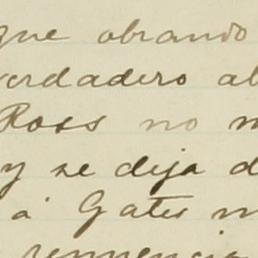 que obrando
verdadero ab
Ross no m
y se dija d
á Gates m
renuencia